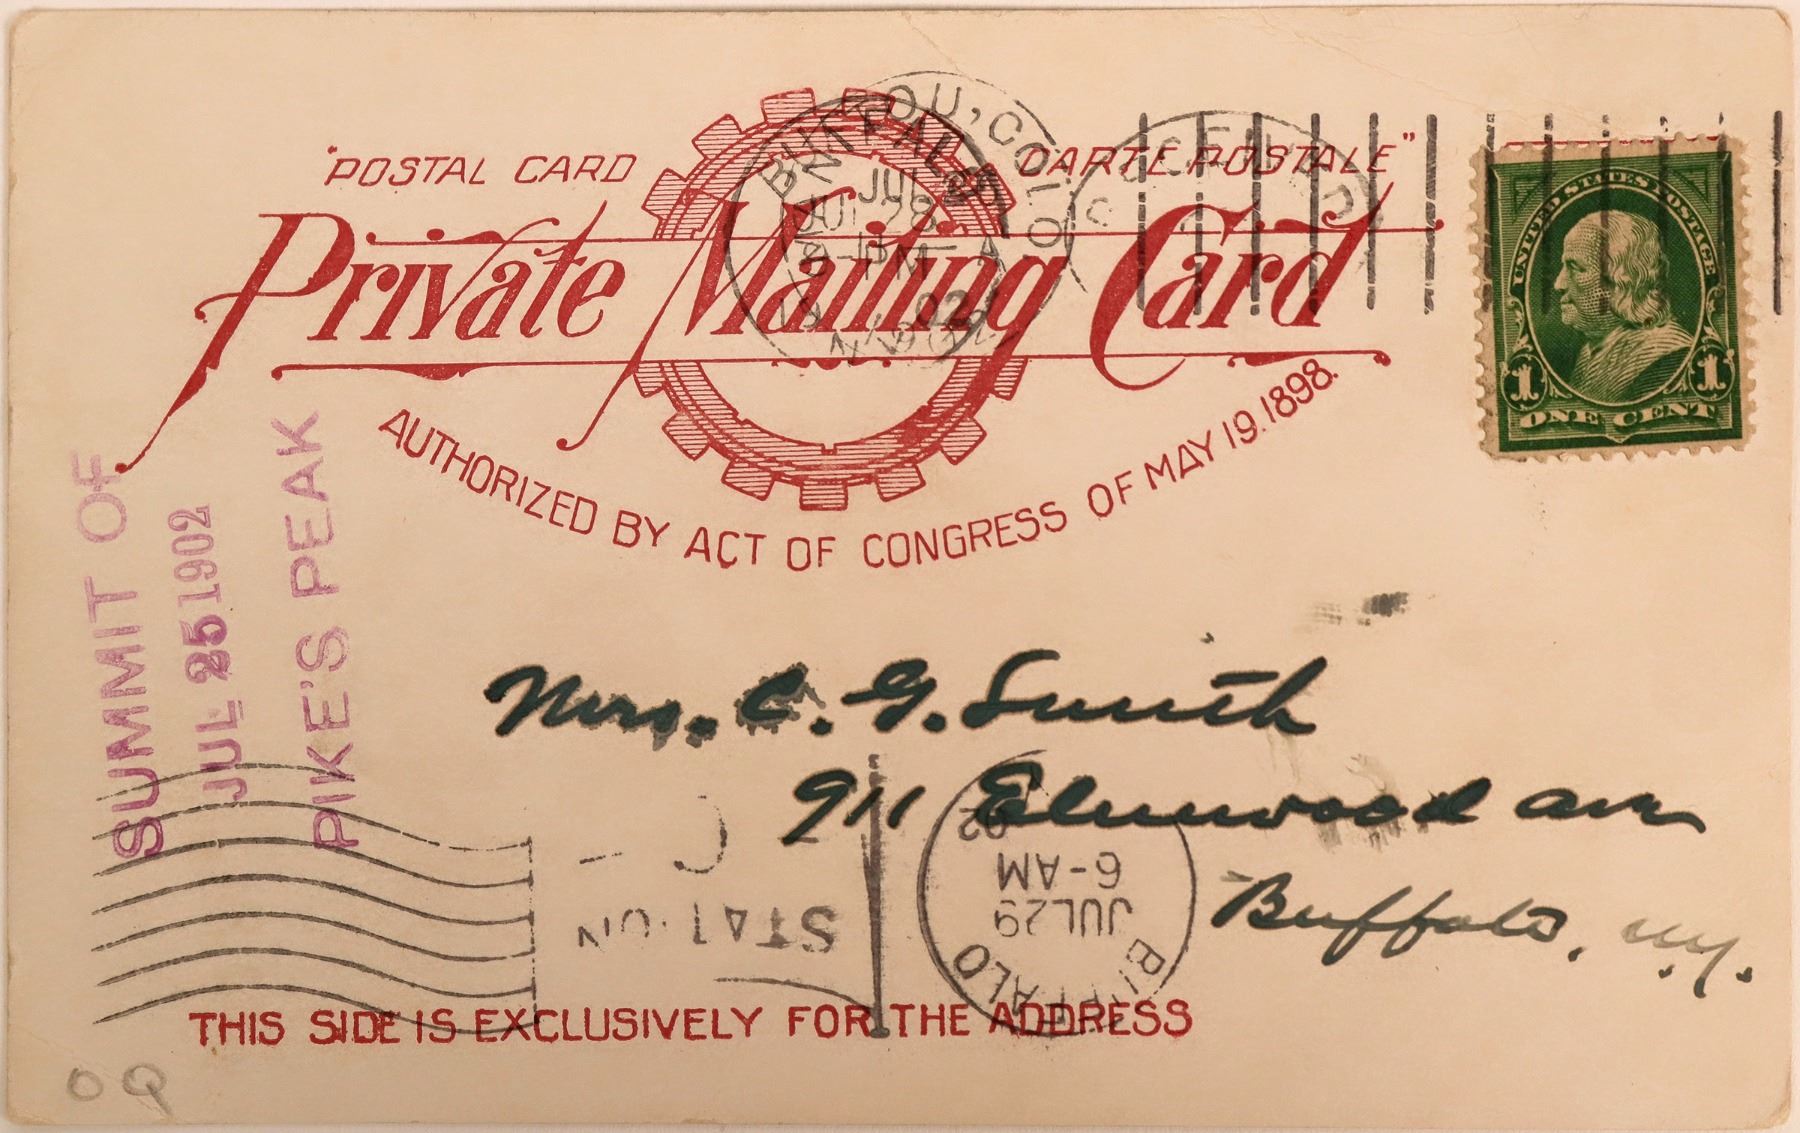 "POSTAL CARD CARTE POSTALE"
Private Mailing Card
AUTHORIZED BY ACT OF CONGRESS OF MAY 19. 1898.
UNITED STATES POSTAGE
1 1
ONE CENT
BUFFALO
JUL 28
-PM
02
N.Y.
COLO.
RECEIVED
SUMMIT OF
JUL 25 1902
PIKE'S PEAK
Mrs. C. G. Smith
911 Elmwood Ave
Buffalo, N.Y.
BUFFALO
JUL 29
6-AM
02
STATION
C
THIS SIDE IS EXCLUSIVELY FOR THE ADDRESS
O Q